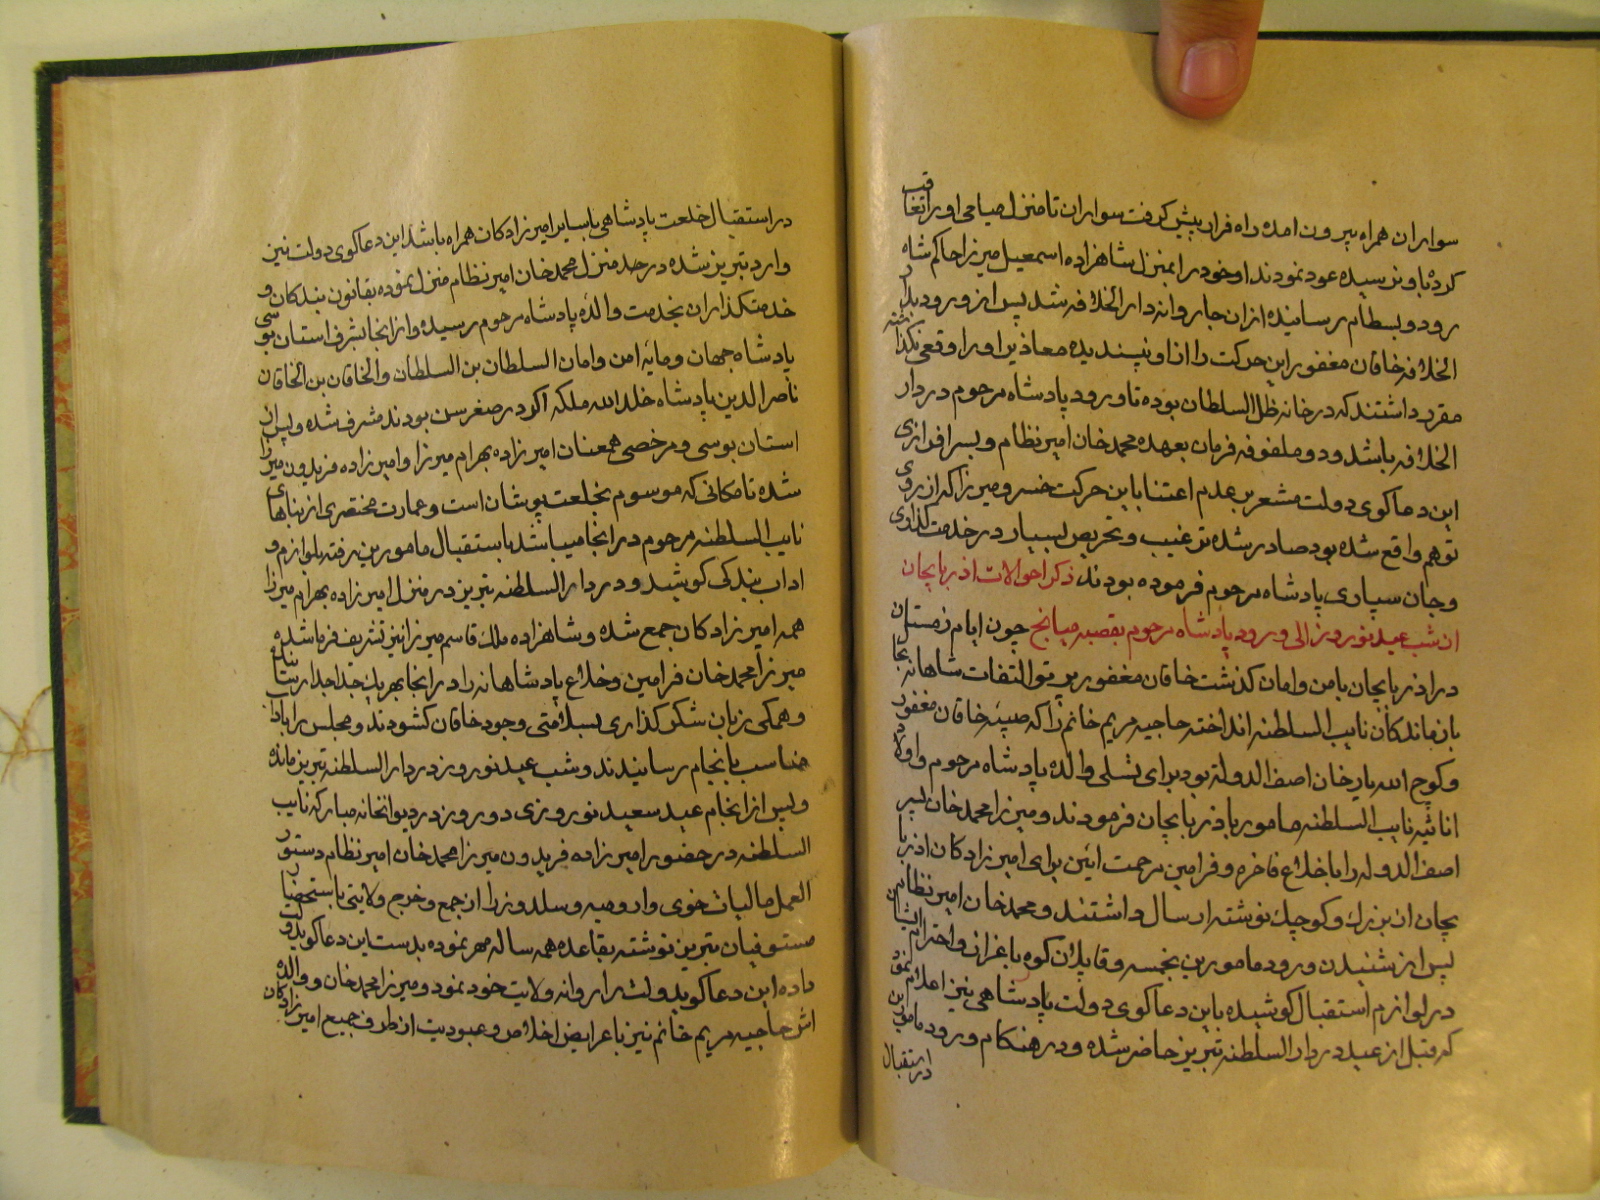 سواران همراه بیرون امده راه فرار پیش گرفت سواران تا منزل صیاحی او را تعاقب
کرده باو نرسیده عود نمودند او خود را بمنزل شاهزاده اسمعیل میرزا حاکم شاه
رود و بسطام رسانیده از ان جا روانه دار الخلافه شد پس از ورود بدار
الخلافه خاقان مغفور این حرکت را از او نپسندیده معاذیر او را وقعی نگذاشته
مقرر داشتند که در خانه ظل السلطان بوده تا ورود پادشاه مرحوم در دار
الخلافه باشد و دو ملفوفه فرمان بعهده محمد خان امیر نظام و بسرافرازی
این دعا کوی دولت مشعر بر عدم اعتنا باین حرکت خسرو میرزا که از روی
توهم واقع شده بود صادر شده ترغیب و تحریص بسیار در خدمت کذاری
و جان سپاری پادشاه مرحوم فرموده بودند ذکر احوالات اذربایجان
از شب عید نوروز الی ورود پادشاه مرحوم بقصبه میانج چون ایام زمستان
در اذربایجان بامن و امان کذشت خاقان مغفور پرتو التفات شاهانه بجا
بازماندکان نایب السلطنه انداخته حاجیه مریم خانم را که صبیه خاقان مغفور
و کوچ الله یار خان اصف الدوله بود برای تسلی والده پادشاه مرحوم و اولاد
اناثیه نایب السلطنه مامور باذربایجان فرمودند و میرزا محمد خان پسر
اصف الدوله را با خلاع فاخره و فرامین مرحمت ائین برای امیرزادکان اذربا
یجان از بزرك و کوچك نوشته ارسال داشتند و محمد خان امیر نظام
پس از شنیدن ورود مامورین بخمسه و قاپلان کوه باعزاز و احترام ایشان
در لوازم استقبال کوشیده باین دعا کوی دولت پادشاهی نیز اعلام نمود
که قبل از عید در دار السلطنه تبریز حاضر شده و در هنکام ورود مامورین
در استقبال
در استقبال خلعت پادشاهی با سایر امیرزادکان همراه باشد این دعا کوی دولت نیز
وارد تبریز شده در حد منزل محمد خان امیر نظام منزل نموده بقانون بندکان و
خدمتکذاران بخدمت والده پادشاه مرحوم رسیده و از انجا بشرف استان بوسی
پادشاه جهان و مایه امن و امان السلطان بن السلطان و الخاقان بن الخاقان
ناصر الدین پادشاه خلد الله ملکه اکو در صغر سن بودند مشرف شده و پس از
استان بوسی و مرخصی همعنان امیرزاده بهرام میرزا و امیرزاده فریدون میرزا
شده تا مکانی که موسوم بخلعت پوشان است و عمارت مختصری از بناهای
نایب السلطنه مرحوم در انجا میباشد باستقبال مامورین رفته بلوازم و
اداب بندکی کوشید و در دار السلطنه تبریز در منزل امیرزاده بهرام میرزا
همه امیرزادکان جمع شده و شاهزاده ملك قاسم میرزا نیز تشریف فرما شده
میرزا محمد خان فرامین و خلاع پادشاهانه را در انجا بهریك جدا جدا رسانیده
و همکی زبان شکرکذاری بسلامتی وجود خاقان کشودند و مجلس را باداب
مناسب بانجام رسانیدند و شب عید نوروز در دار السلطنه تبریز مانده
و پس از انجام عید سعید نوروزی دو روز در دیوانخانه مبارکه نایب
السلطنه در حضور امیرزاده فریدون میرزا محمد خان امیر نظام دستور
العمل مالیات خوی و ارومیه و سلدوز را از جمع و خرج ولایتی باستحضار
مستوفیان تبریز نوشته بقاعده همه ساله مهر نموده بدست این دعا کوی دولت
داده این دعا کوی دولت را روانه ولایت خود نمود و میرزا محمد خان و والده
اش حاجیه مریم خانم نیز با عرایض اخلاص و عبودیت از طرف جمیع امیرزادکان